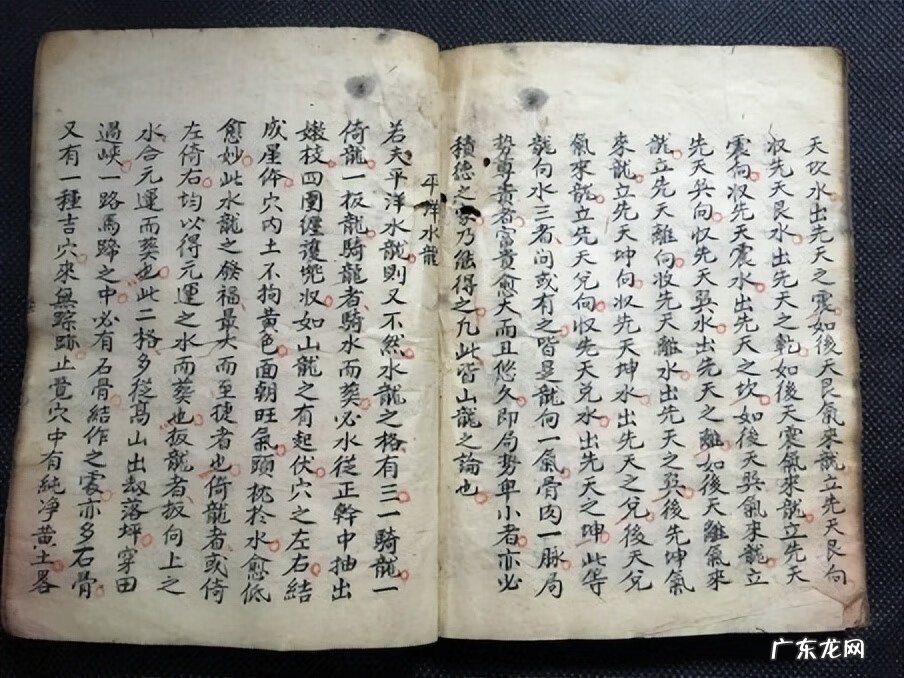 天坎水出先天之震如後天艮氣來龍立先天艮向
収先天艮水出先天之乾如後天震氣來龍立先天
震向収先天震水出先天之坎如後天巽氣來龍立
先天巽向収先天巽水出先天之離如後天離氣來
龍立先天離向収先天離水出先天之巽後先坤氣
來龍立先天坤向収先天坤水出先天之兌後天兌
氣來龍立先天兌向収先天兌水出先天之坤此等
龍向水三者問或有之皆是龍向一氣骨肉一脈局
勢尊貴者富貴愈大而且悠久即局勢卑小者亦必
積德之家乃能得之凡此皆山龍之論也
平洋水龍
若夫平洋水龍則又不然水龍之格有三一騎龍一
倚龍一扳龍騎龍者騎水而葬必水從正幹中抽出
嫩枝四圍纏護兜収如山龍之有起伏穴之左右結
成星体穴內土不拘黃色面朝旺氣頭枕於水愈低
愈妙此水龍之發福最大而至捷者也倚龍者或倚
左倚右均以得元運之水而葬也扳龍者扳向上之
水合元運而葬也此二格多從高山出刼落坪穿田
過峽一路馬蹄之中必有石骨結作之處亦多石骨
又有一種吉穴來無踪跡止覓穴中有純淨黃土畧
广东龙网